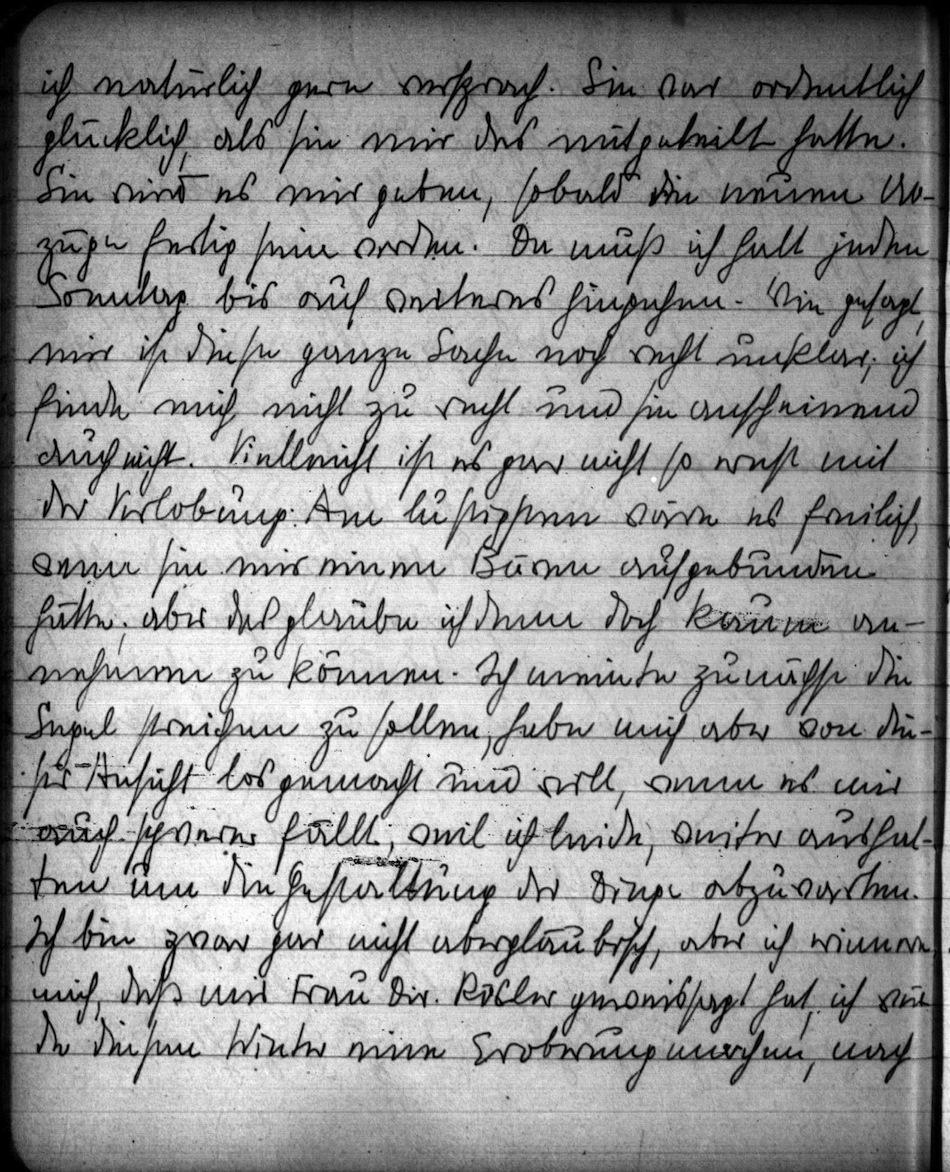 ich natürlich gern versprach. Sie war ordentlich
glücklich, als sie mir das mitgeteilt hatte.
Sie wird es mir geben, sobald die neuen Ab-
züge fertig sein werden. Da muß ich halt jeden
Sonntag bis auf weiteres hingehen. Wie gesagt,
mir ist diese ganze Sache noch recht unklar; ich
finde mich nicht zu recht und sie anscheinend
auch nicht. Vielleicht ist es gar nicht so ernst mit
der Verlobung. Am lustigsten wäre es freilich,
wenn sie mir einen Bären aufgebunden
hätte; aber das glaube ich denn doch kaum an-
nehmen zu können. Ich meinte zunächst die
Segel streichen zu sollen, habe mich aber von die-
ser Ansicht los gemacht und will, wenn es mir
auch schwerer fällt, weil ich leide, weiter aushal-
ten um die Gestaltung der Dinge abzuwarten.
Ich bin zwar gar nicht abergläubisch, aber ich erinnere
mich, daß mir Frau Dir. Rösler geweissagt hat, ich wür-
de diesen Winter eine Eroberung machen, nach